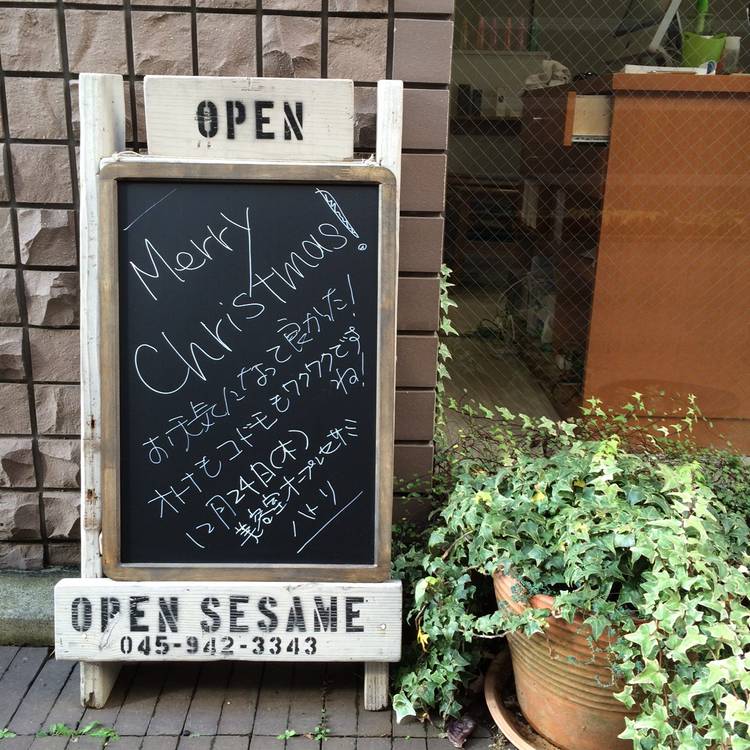 OPEN
Merry
Christmas!
お天気になって良かった!
オトナもコドモもワクワクです
ね!
12月24日(木)
美容室オープンセサミ
ハトリ
OPEN SESAME
045-942-3343